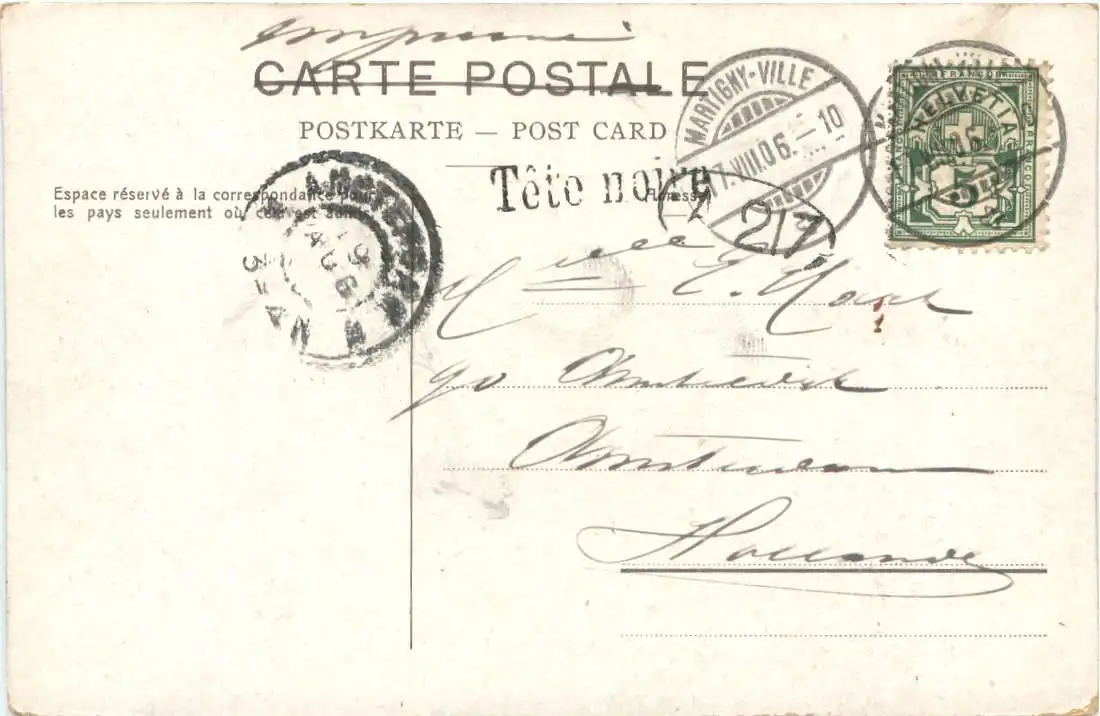 Imprimé
CARTE POSTALE
POSTKARTE — POST CARD
Espace réservé à la correspondance pour
les pays seulement où cela est admis.
Adresse
Tête noire
MARTIGNY-VILLE
17.VIII.06.–10
217
AMSTERDAM
19 AUG
3-4 N
HELVETIA
FRANCO
5
Mlle E. Kaal
90 Amsteldijk
Amsterdam
Hollande